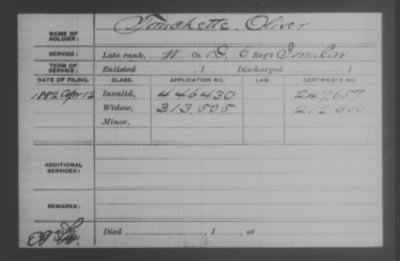 NAME OF SOLDIER: Touchette, Oliver
SERVICE: Late rank, Co. D, 6 Reg't
TERM OF SERVICE: Enlisted , 1 Discharged , 1
DATE OF FILING. CLASS. APPLICATION NO. LAW. CERTIFICATE NO.
1882 Apr 12 Invalid, 446430 247,657
Widow, 313,505
Minor,
ADDITIONAL SERVICES:
REMARKS:
Died , 1 , at